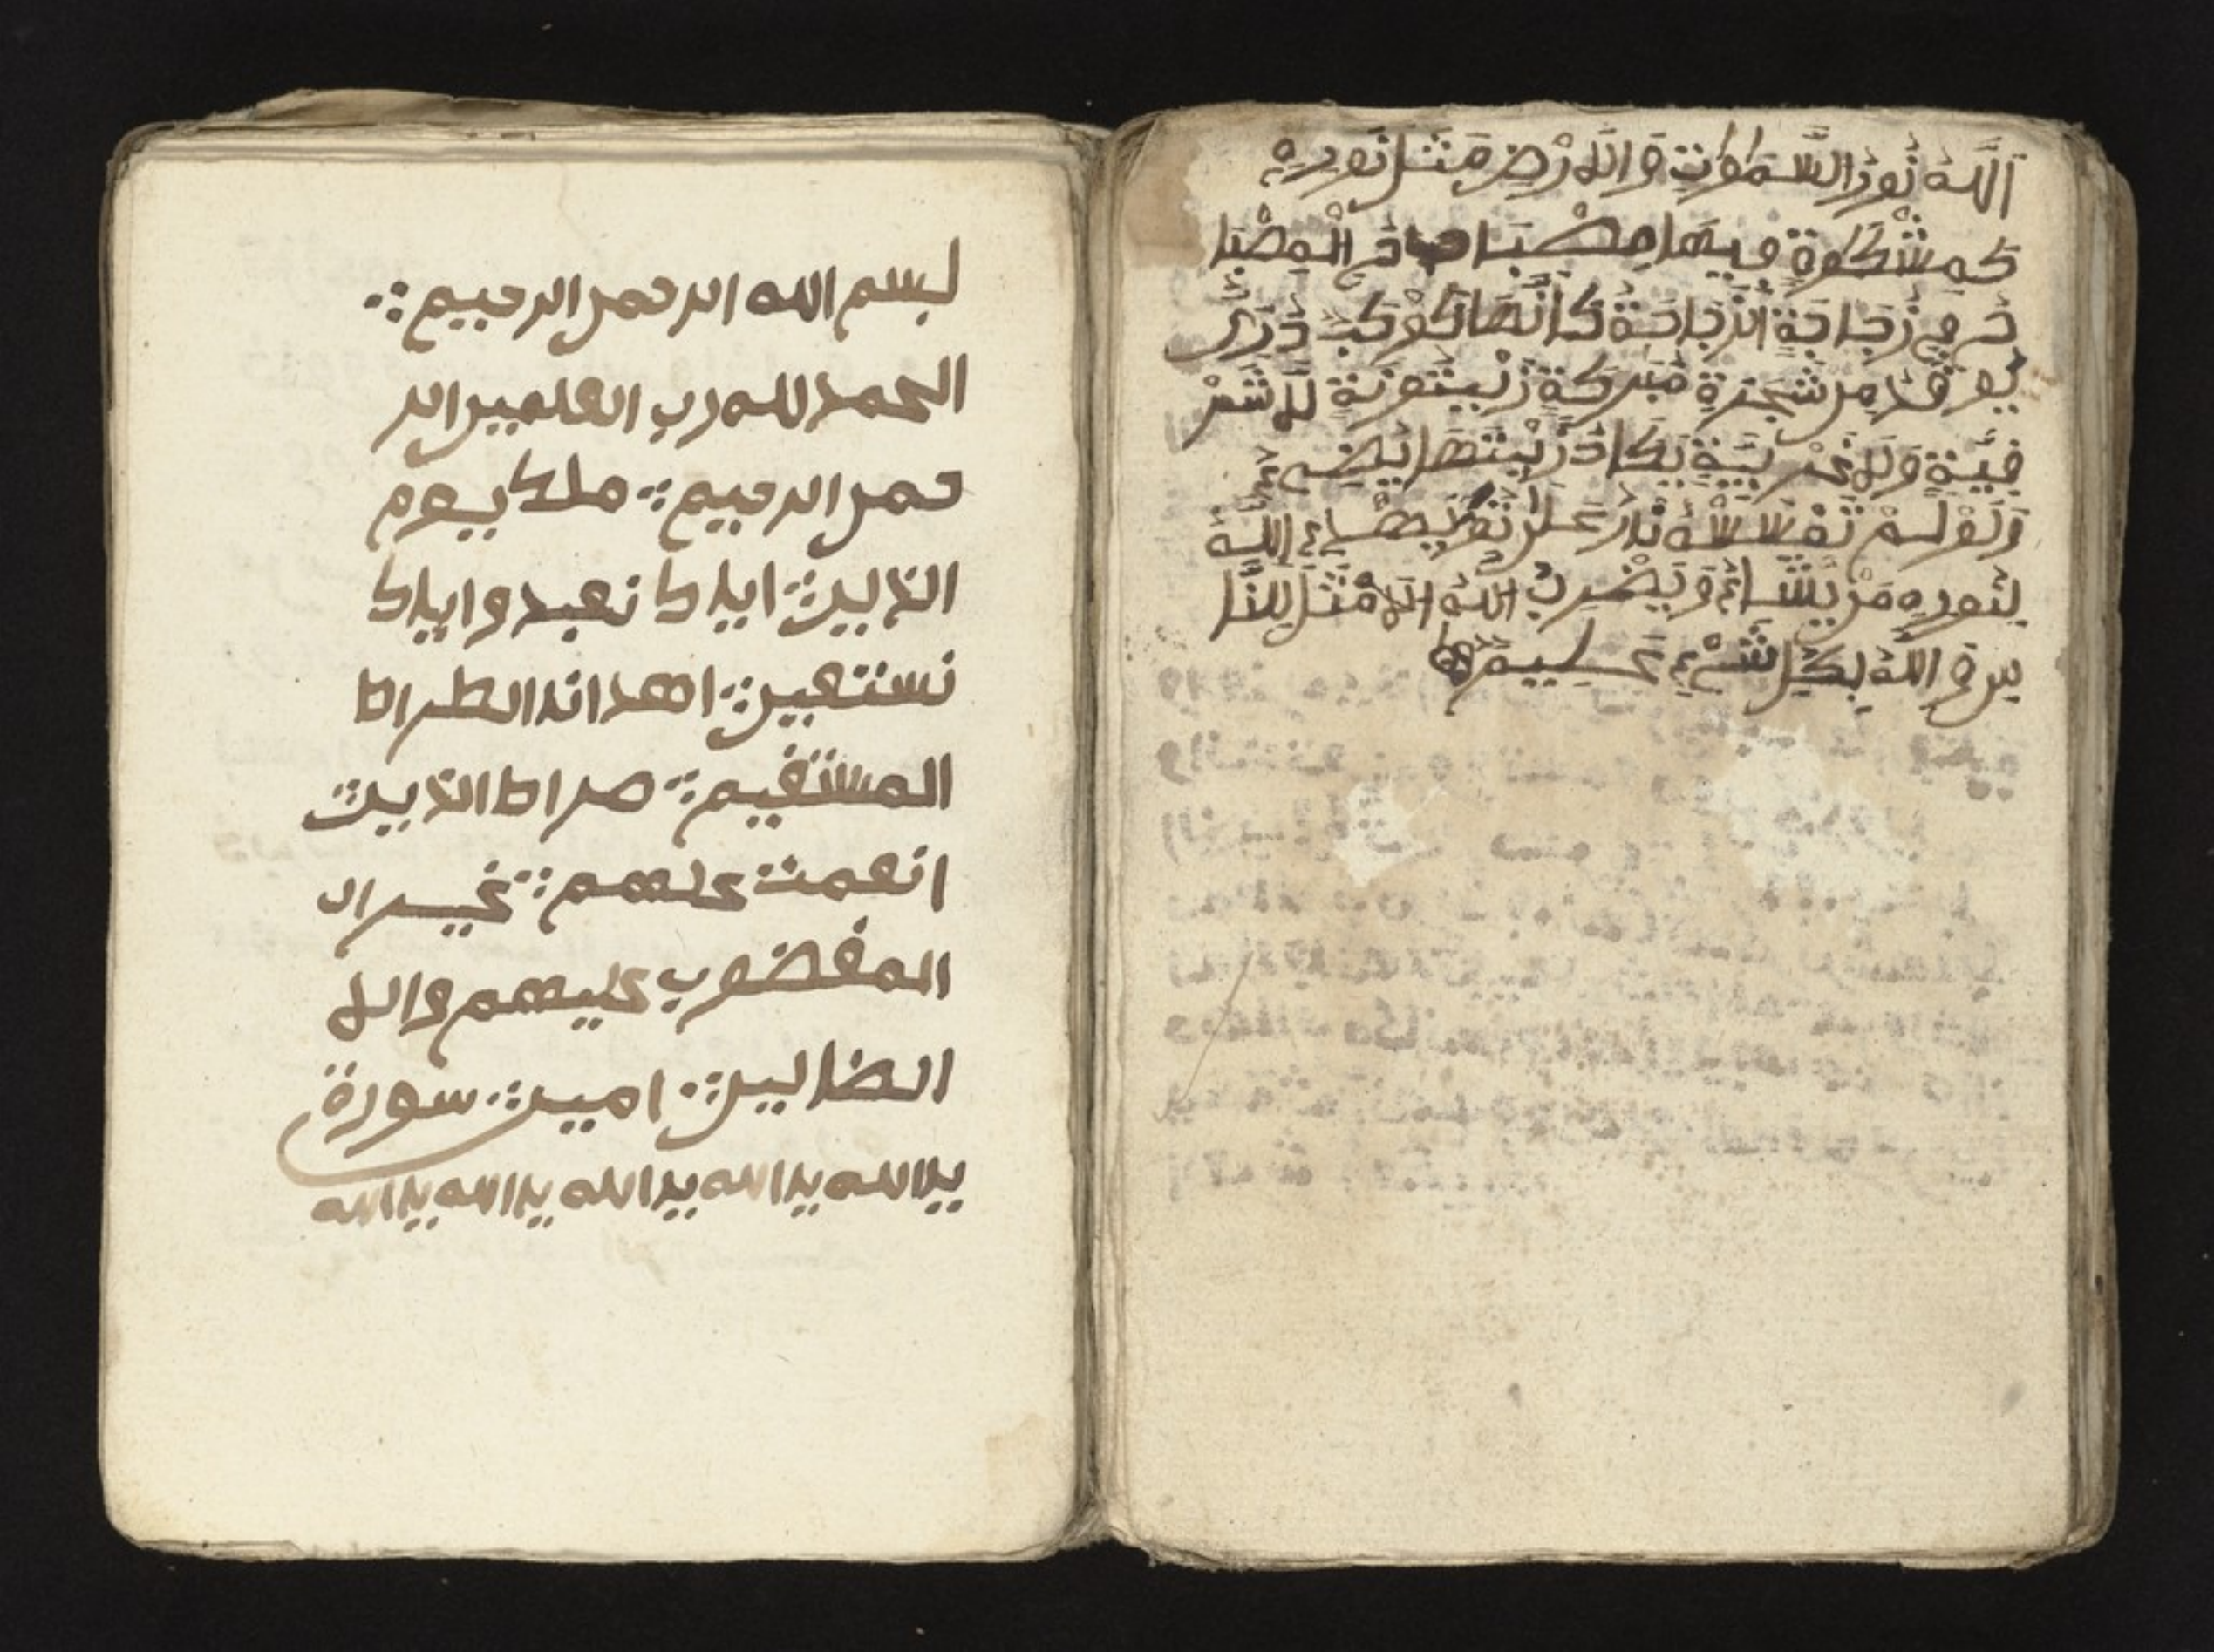 اَللَّهُ نُورُ السَّمٰوٰتِ وَالَارْضِ مَثَل نُورِهِ
كَمِشْكَوةٍ فِيهَا مِصْبَاحُ الْمِصْبَا
حُ فِى زُجَاجَةٍ الزُّجَاجَةُ كَأَنَّهَا كَوْكَبٌ دُرِّى
يُوقَدُ مِن شَجَرَةٍ مُبَرَكَةٍ زَيْتُونَةٍ لَّا شَرْ
قِيَّةٍ وَلَا غَرْبِيَّةٍ يَكَادُ زَيْتُهَا يُضِىءُ
وَلَوْ لَمْ تَمْسَسْهُ نَارٌ نُّورٌ عَلَى اللَّهُ
لِنُورِهِ مَنْ يَّشَاءُ وَيَضْرِبُ اللَّهُ الَامْثَلَ لِلنَّا
سِ وَاللَّهُ بِكُلِّ شَىْءٍ عَلِيمٌ
بسم الله الرحمن الرحيم
الحمد لله رب العلمين الر
حمن الرحيم ملك يوم
الذين اياك نعبد واياك
نستعين اهدانا الطراط
المستقيم صراط الذين
انعمت علهم غير ال
المغضوب عليهم والا
الضالين امين سورة
يا الله يا الله يا الله يا الله يا الله